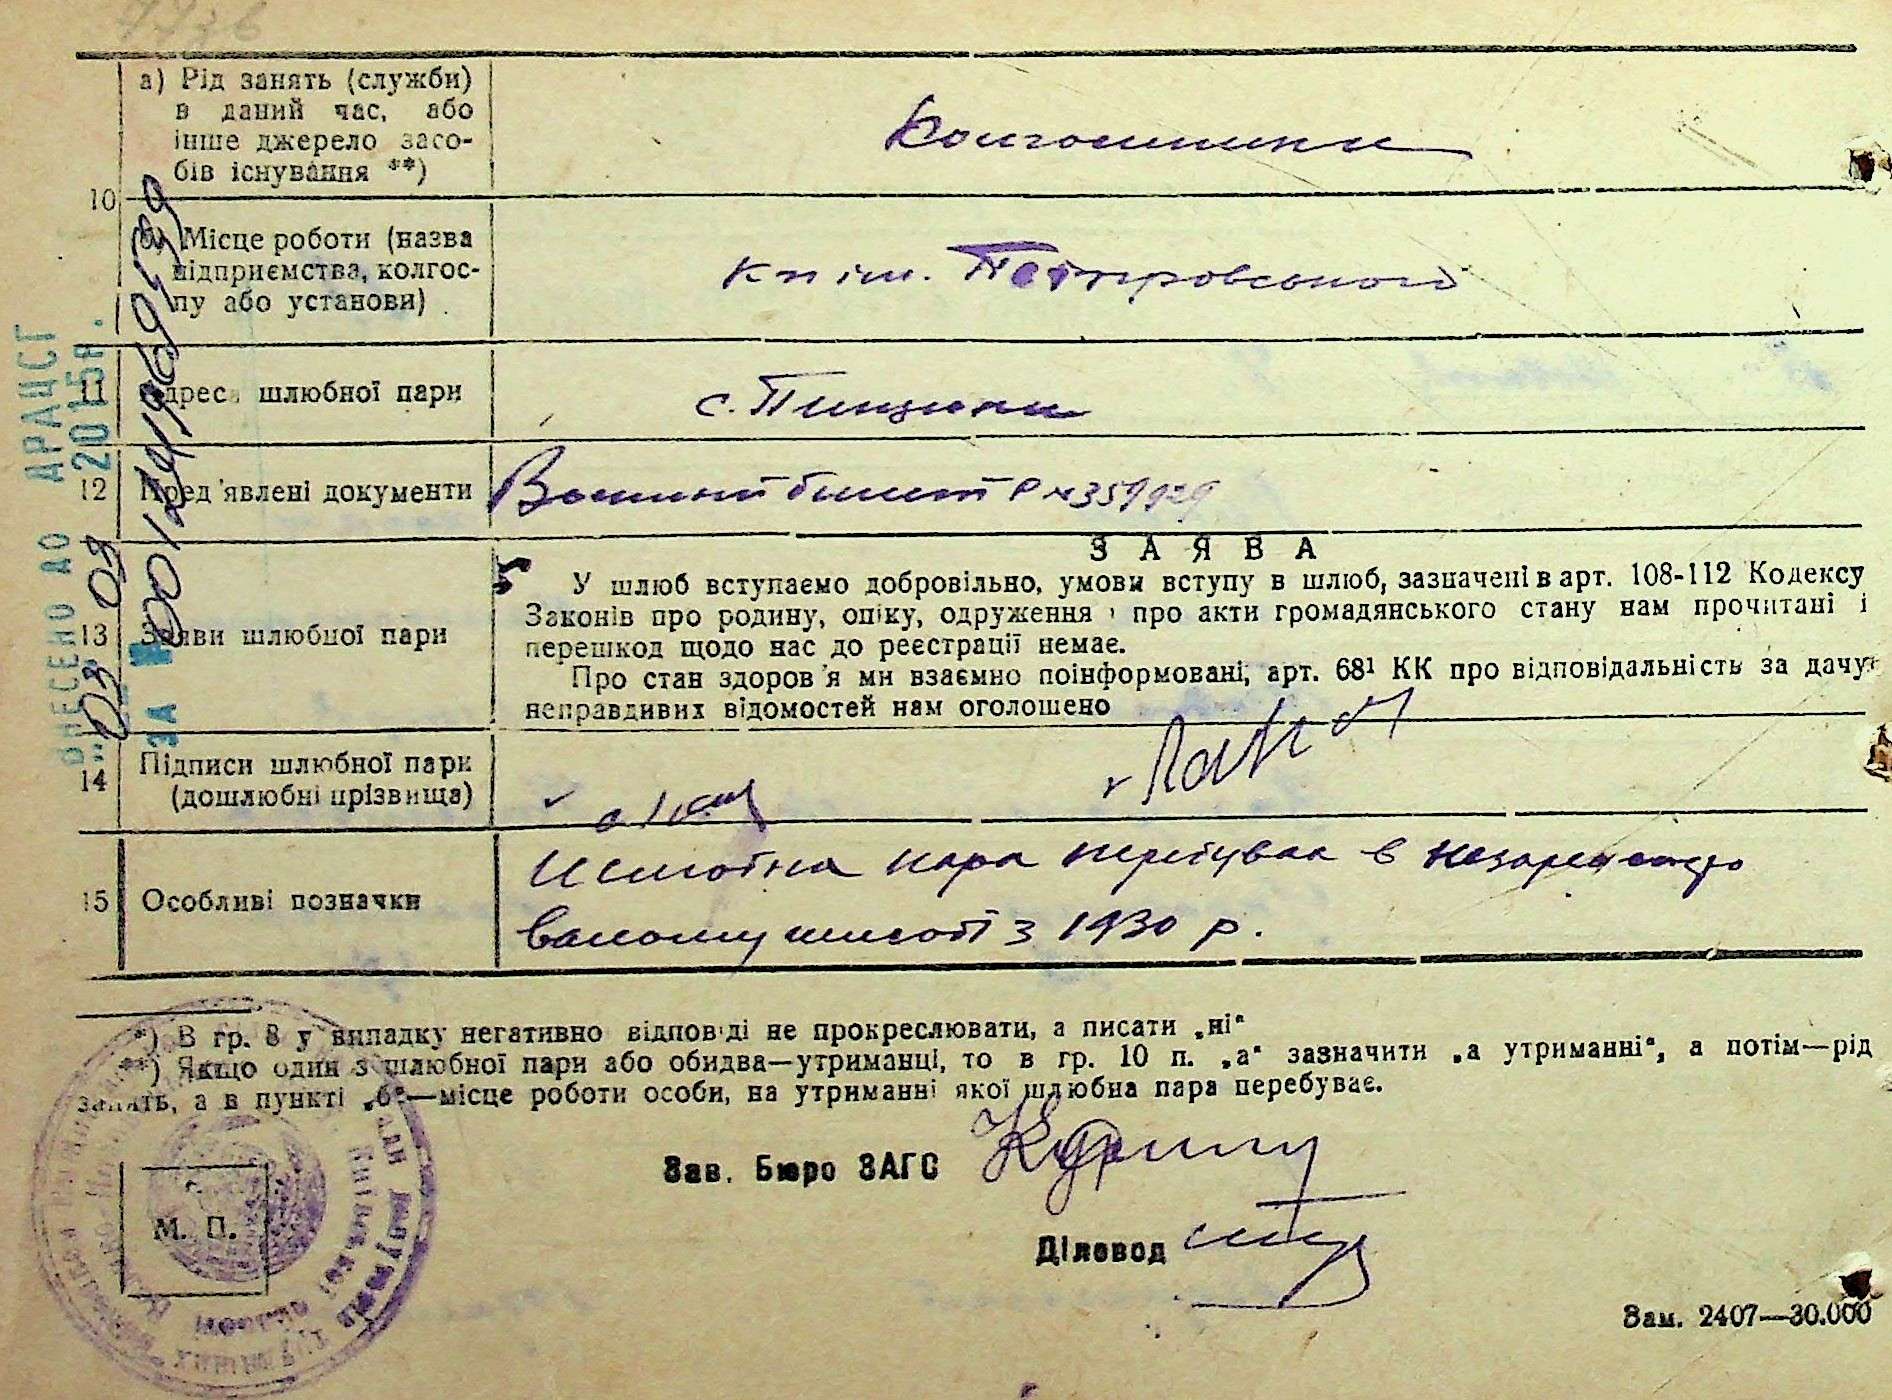 а) Рід занять (служби)
в даний час, або
інше джерело засо-
бів існування **)
Колгоспники
10
Місце роботи (назва
підприємства, колгос-
пу або установи)
к-п ім. Петровського
11 Адреса шлюбної пари
с. Пищики
12 Пред'явлені документи
билет № 359929
13 Заяви шлюбної пари
ЗАЯВА
У шлюб вступаємо добровільно, умови вступу в шлюб, зазначені в арт. 108-112 Кодексу
Законів про родину, опіку, одруження і про акти громадянського стану нам прочитані і
перешкод щодо нас до реєстрації немає.
Про стан здоров'я ми взаємно поінформовані, арт. 68¹ КК про відповідальність за дачу
неправдивих відомостей нам оголошено
14 Підписи шлюбної пари
(дошлюбні прізвища)
15 Особливі позначки
Шлюбна пара перебуває в незареєстро
ваному шлюбі з 1930 р.
*) В гр. 8 у випадку негативно відповіді не прокреслювати, а писати „ні“
**) Якщо один з шлюбної пари або обидва—утриманці, то в гр. 10 п. „а“ зазначити „а утриманні“, а потім—рід
занять, а в пункті „б“—місце роботи особи, на утриманні якої шлюбна пара перебуває.
Зав. Бюро ЗАГС
Діловод
М. П.
Зам. 2407—30.000
ВНЕСЕНО ДО ДРАЦСГ
„03“ 09 2015 р.
ЗА № 00124196939
Київської області